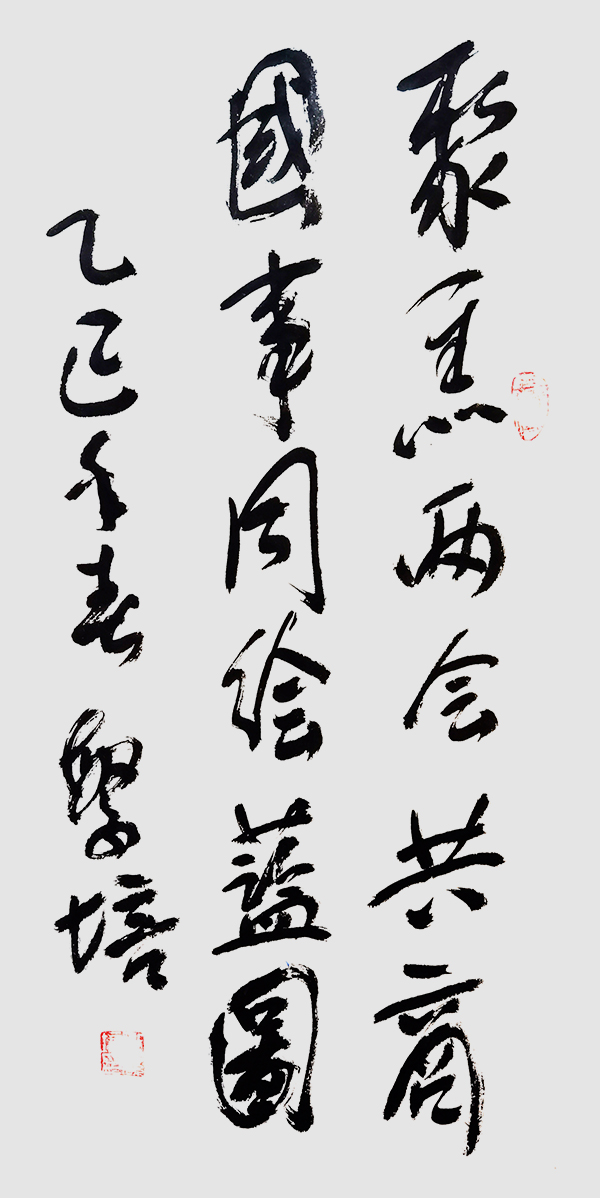 聚焦两会共商
國事同绘藍圖
乙巳年春 黎培